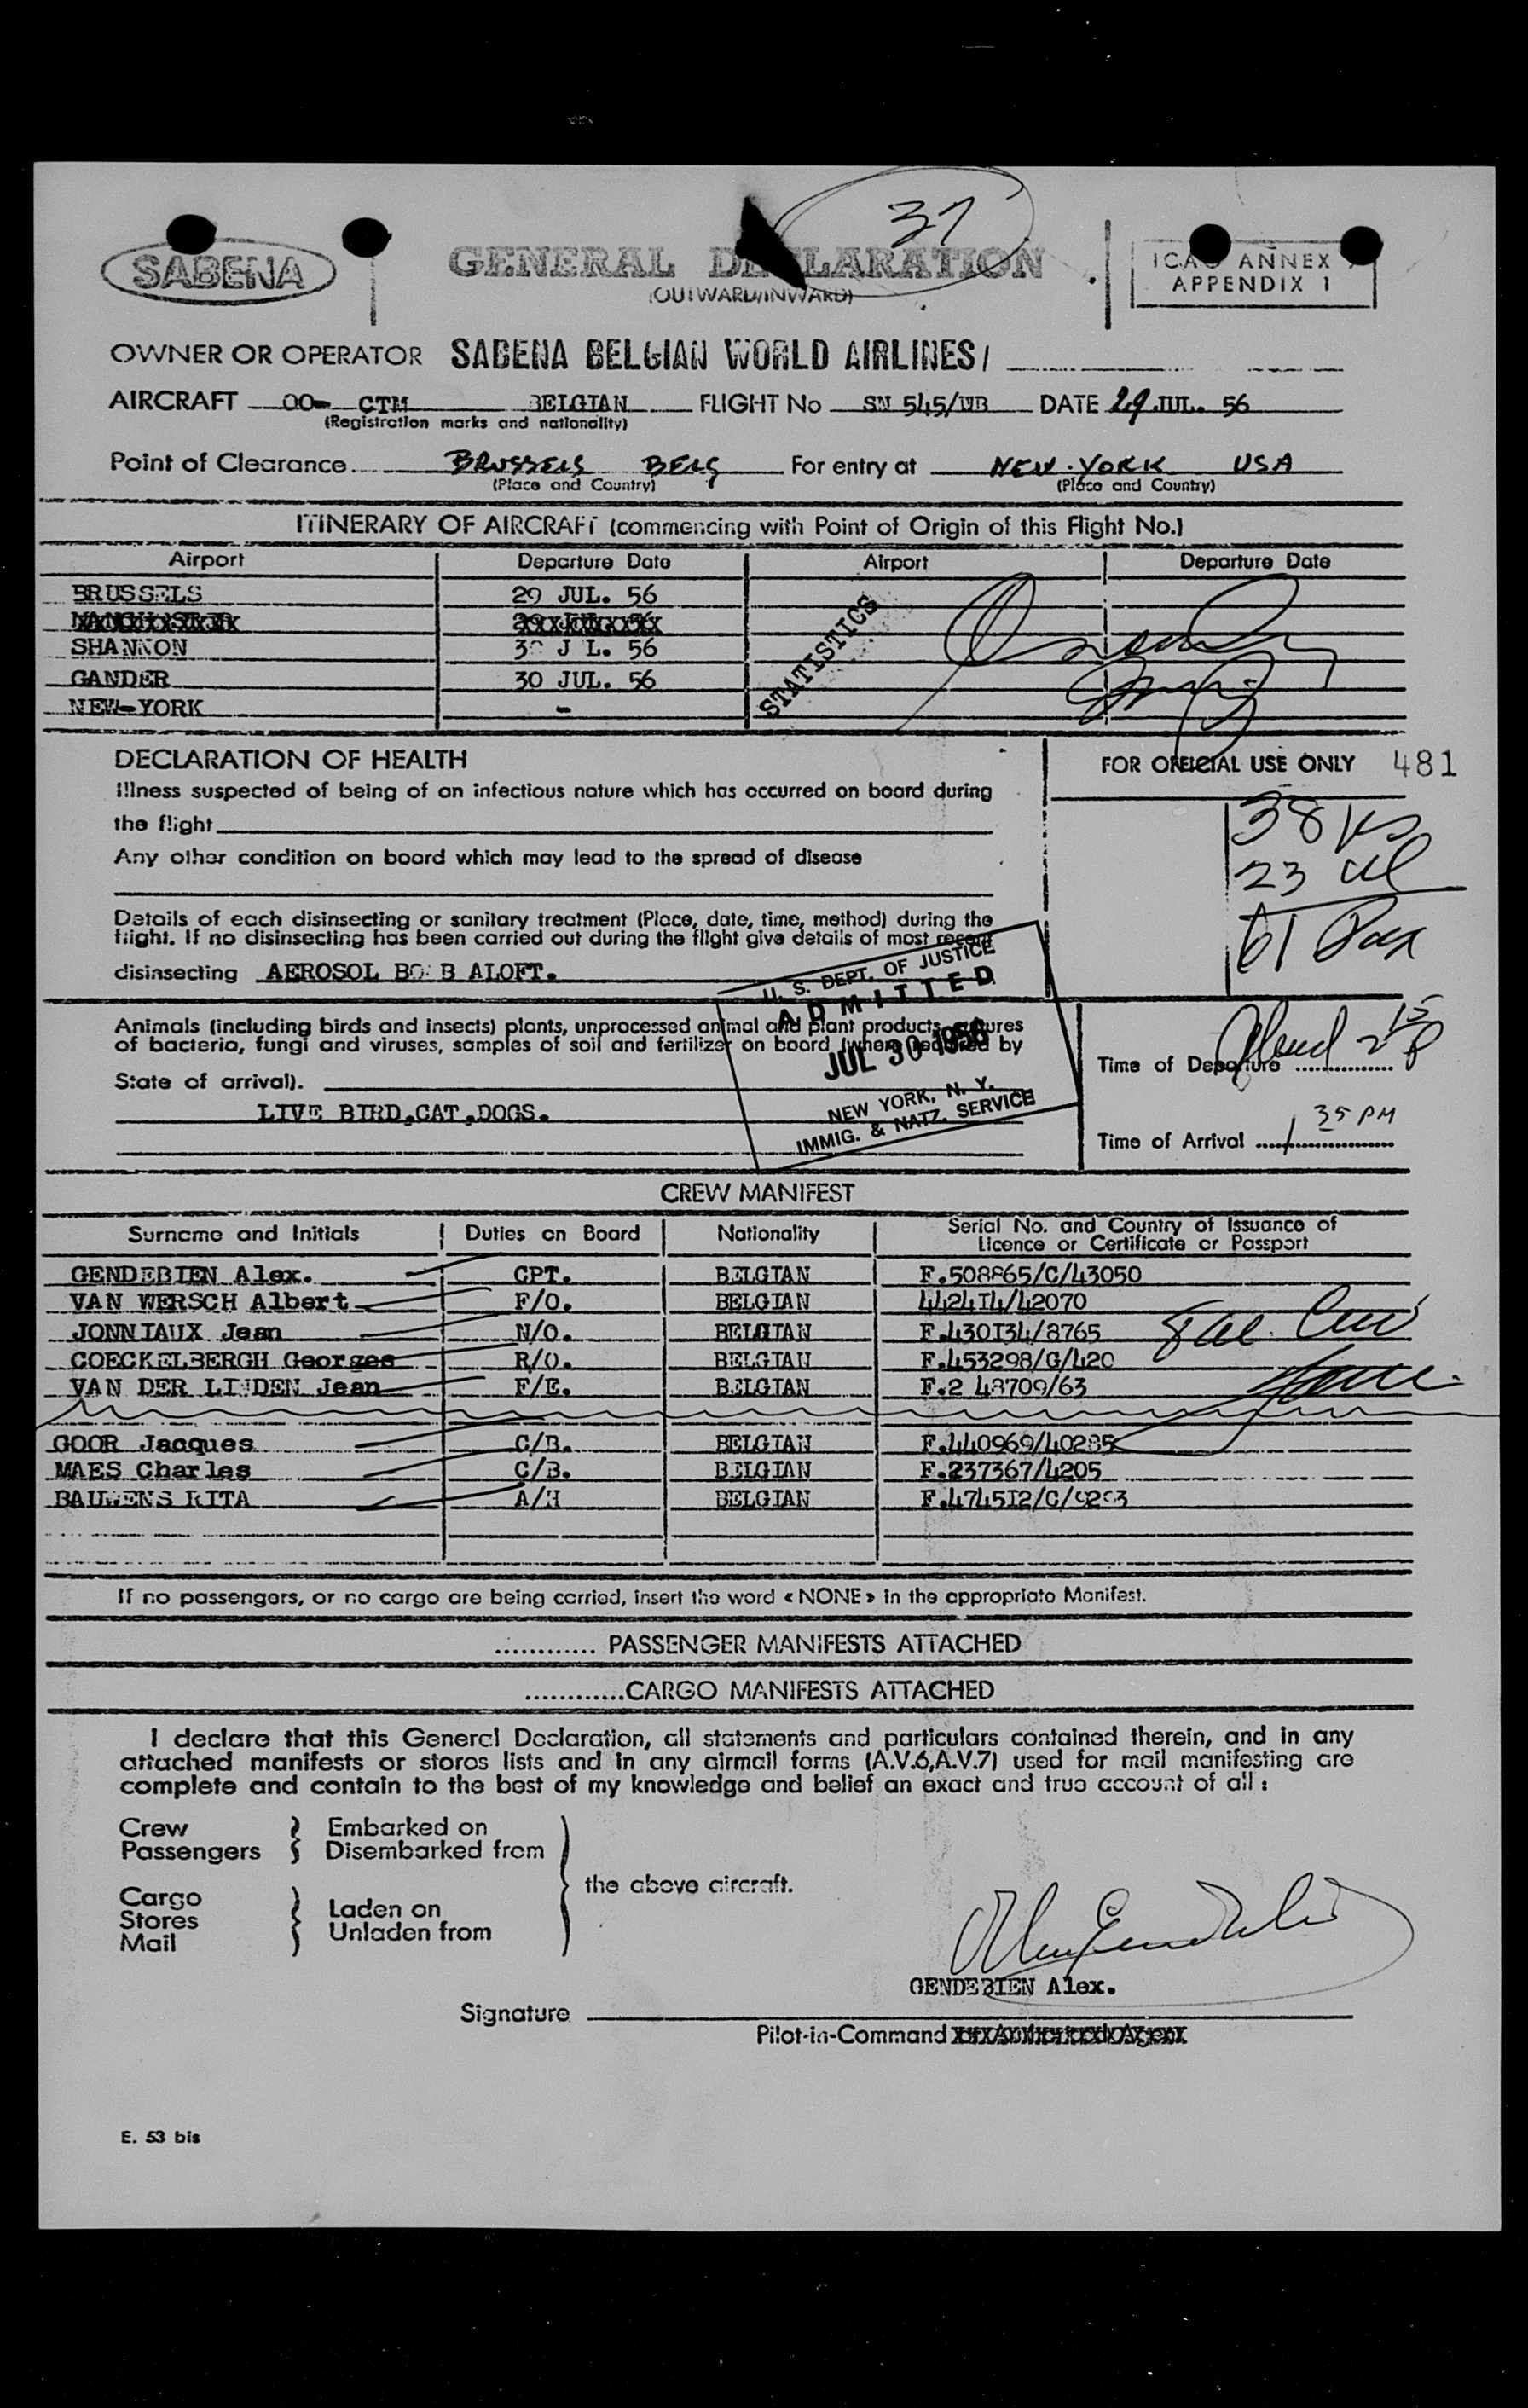 37
SABENA
GENERAL DECLARATION
(OUTWARD/INWARD)
ICAO ANNEX 9
APPENDIX 1
OWNER OR OPERATOR SABENA BELGIAN WORLD AIRLINES/
AIRCRAFT OO- CTM BELGIAN FLIGHT No SN 545/ DATE 29 JUL. 56
(Registration marks and nationality)
Point of Clearance BRUSSELS BELG For entry at NEW-YORK USA
(Place and Country) (Place and Country)
ITINERARY OF AIRCRAFT (commencing with Point of Origin of this Flight No.)
Airport Departure Date Airport Departure Date
BRUSSELS 29 JUL. 56
SHANNON 30 J L. 56
GANDER 30 JUL. 56
NEW-YORK -
STATISTICS
DECLARATION OF HEALTH
FOR OFFICIAL USE ONLY 481
Illness suspected of being of an infectious nature which has occurred on board during
the flight
Any other condition on board which may lead to the spread of disease
38
23
61 Pax
Details of each disinsecting or sanitary treatment (Place, date, time, method) during the
flight. If no disinsecting has been carried out during the flight give details of most recent
disinsecting AEROSOL BO B ALOFT.
U. S. DEPT. OF JUSTICE
ADMITTED
JUL 30 1956
NEW YORK, N. Y.
IMMIG. & NATZ. SERVICE
Animals (including birds and insects) plants, unprocessed animal and plant products, cultures
of bacteria, fungi and viruses, samples of soil and fertilizer on board (where required by
State of arrival).
LIVE BIRD,CAT,DOGS.
Time of Departure
Time of Arrival 1 35 PM
CREW MANIFEST
Surname and Initials Duties on Board Nationality Serial No. and Country of Issuance of
Licence or Certificate or Passport
GENDEBIEN Alex. CPT. BELGIAN F.508865/C/43050
VAN WERSCH Albert F/O. BELGIAN 4424I4/42070
JONNIAUX Jean N/O. BELGIAN F.430I34/8765
COECKELBERGH Georges R/O. BELGIAN F.453298/G/420
VAN DER LINDEN Jean F/E. BELGIAN F.2 48709/63
GOOR Jacques C/B. BELGIAN F.440969/40285
MAES Charles C/B. BELGIAN F.237367/4205
BAUWENS RITA A/H BELGIAN
If no passengers, or no cargo are being carried, insert the word « NONE » in the appropriate Manifest.
............ PASSENGER MANIFESTS ATTACHED
............CARGO MANIFESTS ATTACHED
I declare that this General Declaration, all statements and particulars contained therein, and in any
attached manifests or stores lists and in any airmail forms (A.V.6,A.V.7) used for mail manifesting are
complete and contain to the best of my knowledge and belief an exact and true account of all :
Crew
Passengers
Embarked on
Disembarked from
the above aircraft.
Cargo
Stores
Mail
Laden on
Unladen from
GENDEBIEN Alex.
Signature
Pilot-in-Command
E. 53 bis